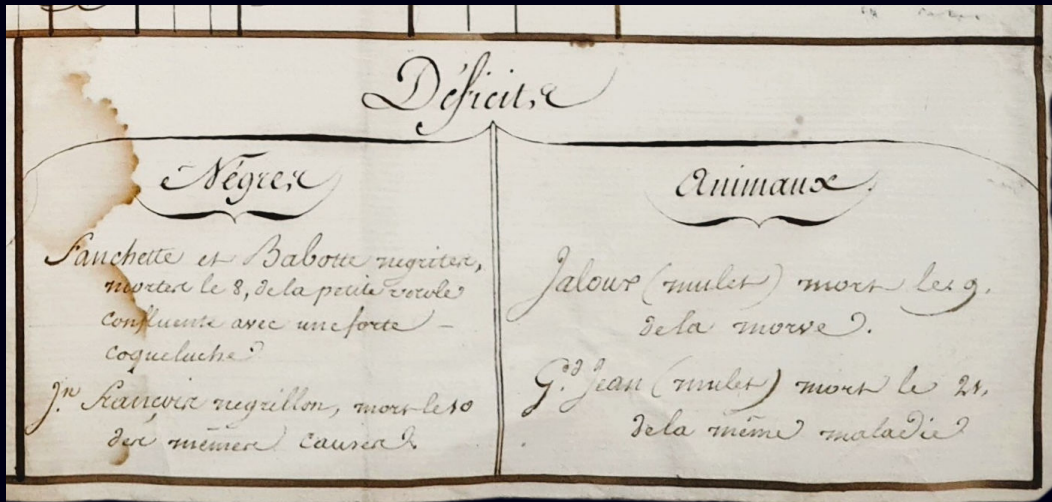 Déficits
Négres
Fanchette et Babotte negrites,
mortes le 8, de la petite verole
confluente avec une forte –
coqueluche.
Jn. François negrillon, mort le 10
des mêmes causes.
Animaux
Jaloux (mulet) mort le 19.
de la morve.
Gd. Jean (mulet) mort le 21,
de la même maladie